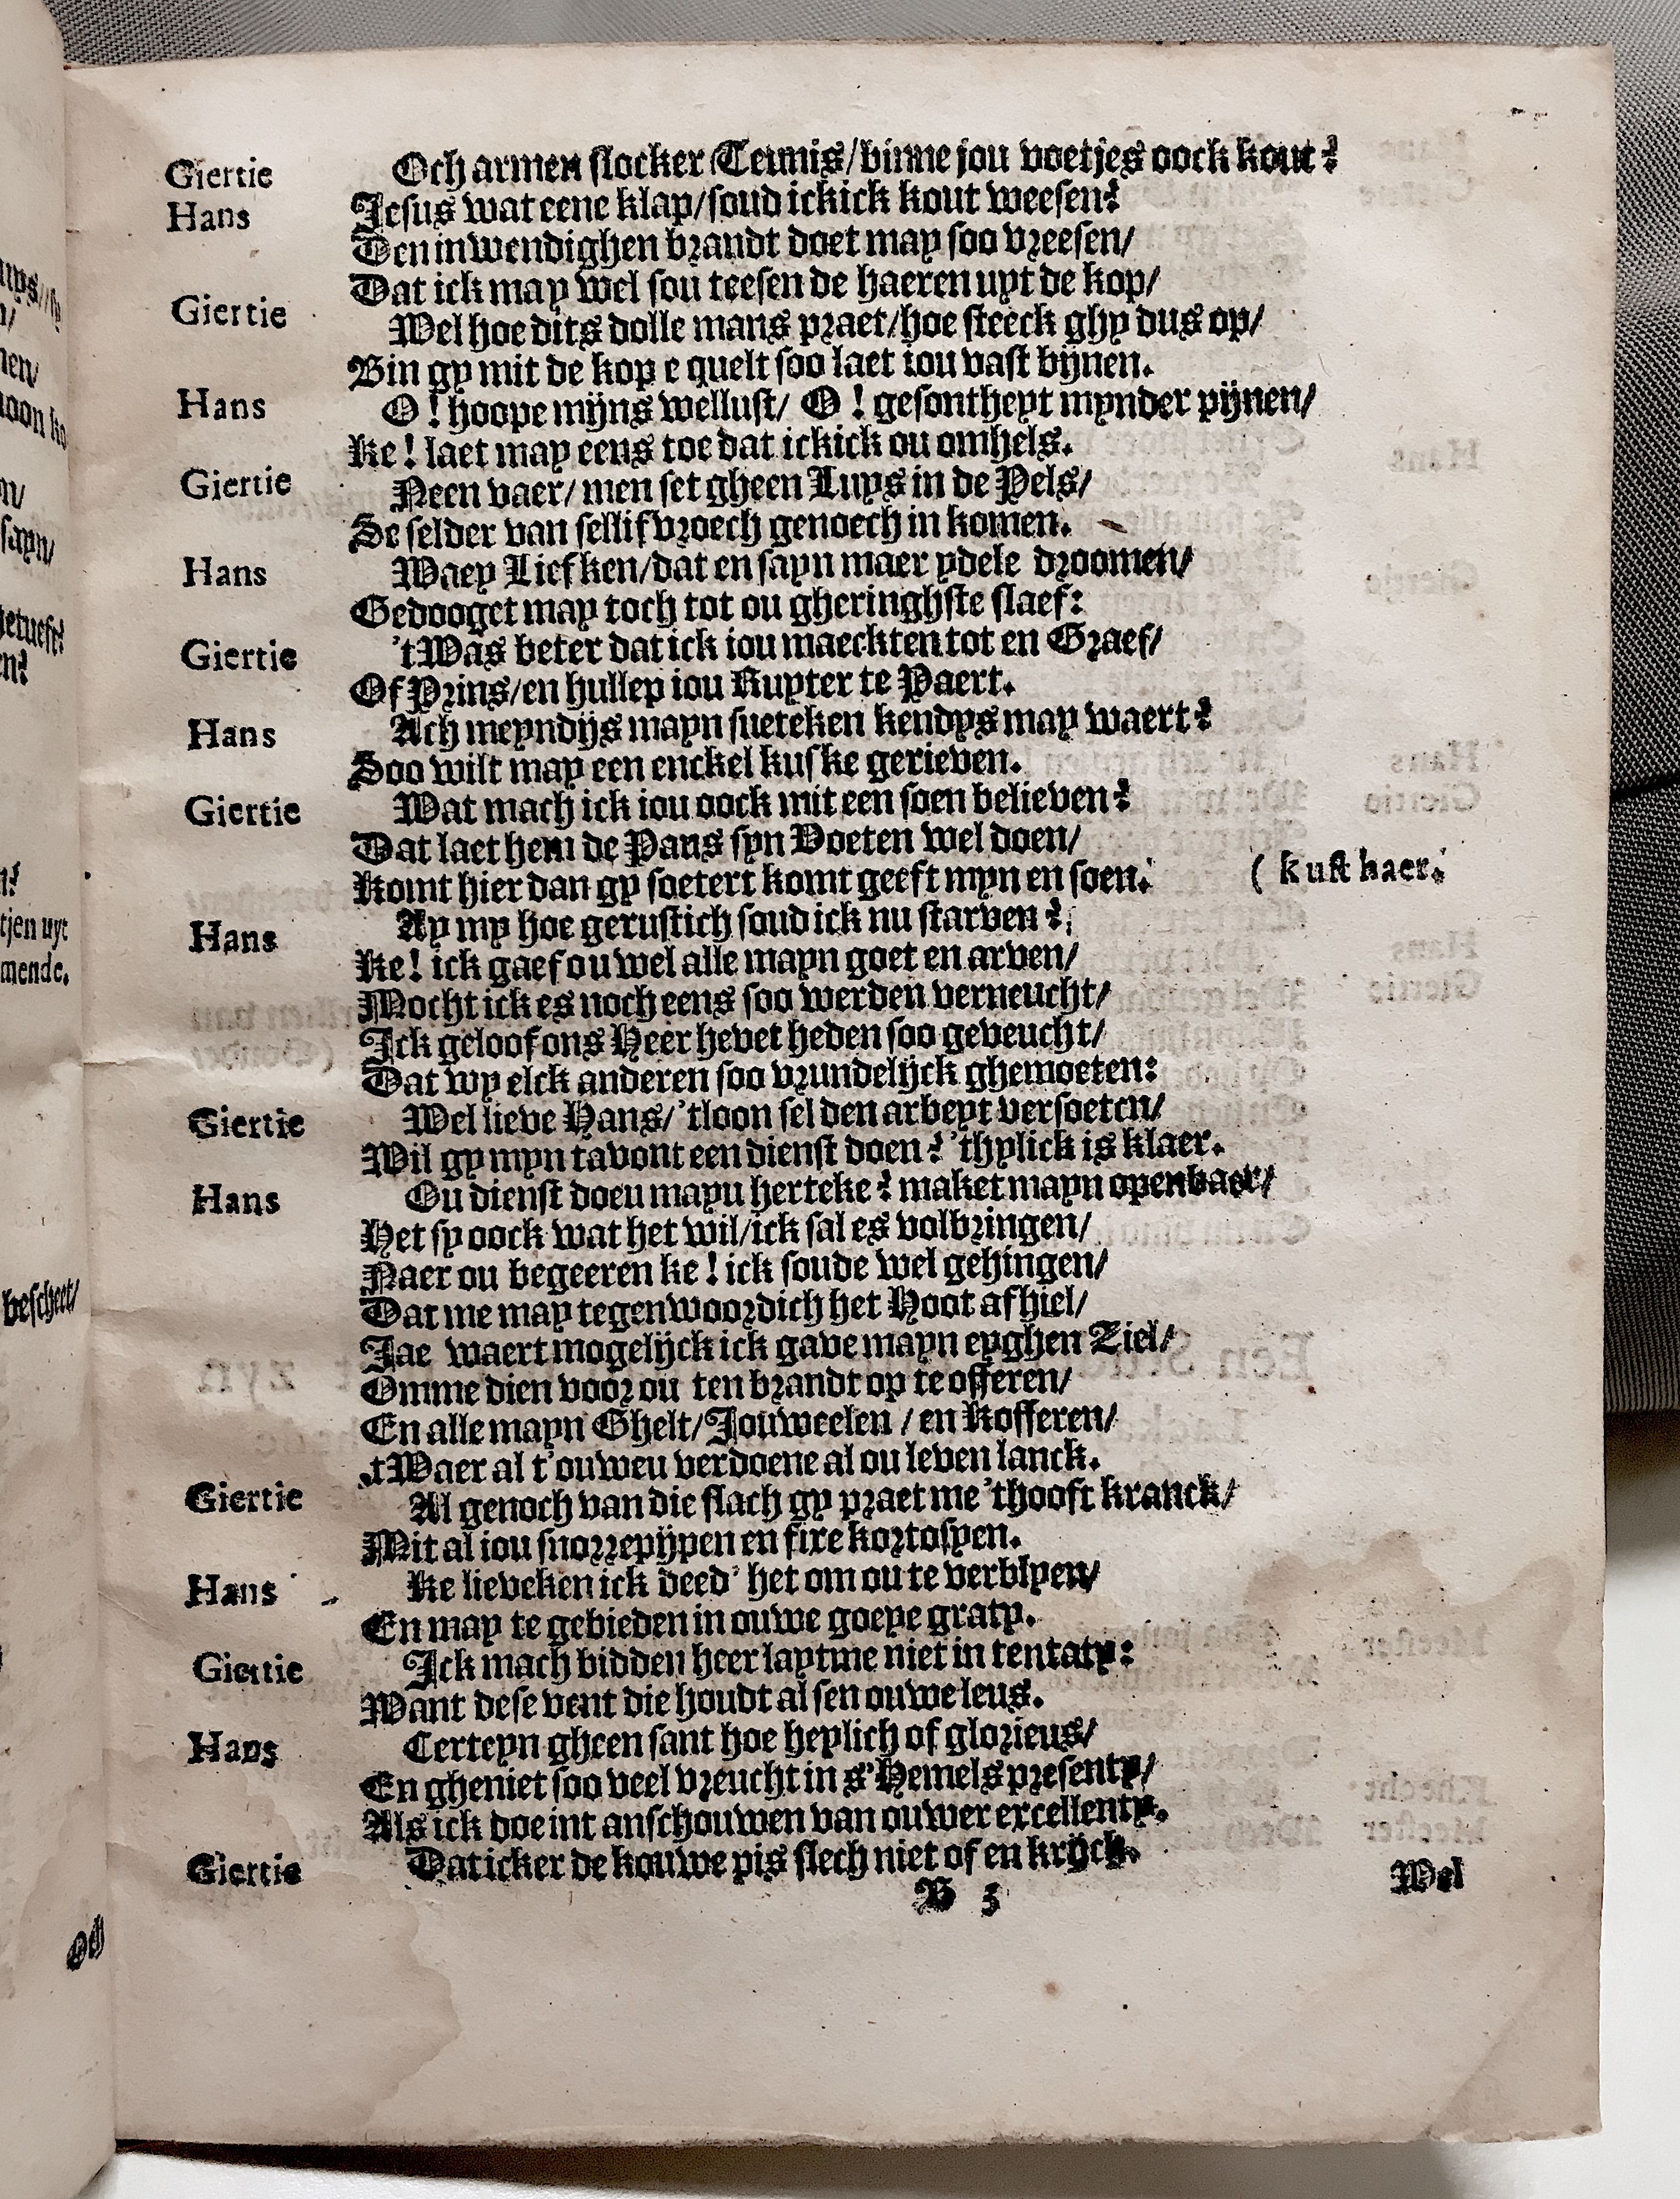 Giertie Och armen slocker Teunis/binne jou voetjes oock kout?
Hans Jesus wat eene klap/soud ickick kout weesen?
Den inwendighen brandt doet may soo vreesen/
Dat ick may wel sou teesen de haeren uyt de kop/
Giertie Wel hoe dits dolle mans praet/hoe steeck ghy dus op/
Bin gy mit de kop e quelt soo laet iou vast bijnen.
Hans O! hoope mijns wellust/ O! gesontheyt mynder pijnen/
Ke! laet may eens toe dat ickick ou omhels.
Giertie Neen vaer/ men set gheen Luys in de Pels/
Se selder van sellif vroech genoech in komen.
Hans Waey Liefken/dat en sayn maer ydele droomen/
Gedooget may toch tot ou gheringhste slaef:
Giertie 'tWas beter dat ick iou maeckten tot en Graef/
Of Prins/en hullep iou Ruyter te Paert.
Hans Ach meyndijs mayn sueteken kendys may waert?
Soo wilt may een enckel kuske gerieven.
Giertie Wat mach ick iou oock mit een soen believen?
Dat laet hem de Paus syn Voeten wel doen/
Komt hier dan gy soetert komt geeft myn en soen. ( kust haer.
Hans Ay my hoe gerustich soud ick nu starven?
Ke! ick gaef ou wel alle mayn goet en arven/
Mocht ick es noch eens soo werden verneucht/
Ick geloof ons Heer hevet heden soo geveucht/
Dat wy elck anderen soo vrundelijck ghemoeten:
Giertie Wel lieve Hans/'tloon sel den arbeyt versoeten/
Wil gy myn tavont een dienst doen? 'thylick is klaer.
Hans Ou dienst doeu mayu herteke? maket mayn openbaer/
Het sy oock wat het wil/ick sal es volbringen/
Naer ou begeeren ke! ick soude wel gehingen/
Dat me may tegenwoordich het Hoot af hiel/
Jae waert mogelijck ick gave mayn eyghen Ziel/
Omme dien voor ou ten brandt op te offeren/
En alle mayn Ghelt/Jouweelen / en Kofferen/
.tWaer al t'ouweu verdoene al ou leven lanck.
Giertie Al genoch van die slach gy praet me 'thooft kranck/
Mit al iou snorrepijpen en fixe kortosyen.
Hans Ke lieveken ick deed' het om ou te verblyen/
En may te gebieden in ouwe goeye graty.
Giertie Ick mach bidden heer laytme niet in tentaty:
Want dese vent die houdt al sen ouwe leus.
Hans Certeyn gheen sant hoe heylich of glorieus/
En gheniet soo veel vreucht in s'Hemels presenty/
Als ick doe int anschouwen van ouwer excellenty.
Giertie Dat icker de kouwe pis slech niet of en krijch.
B 3 Wel